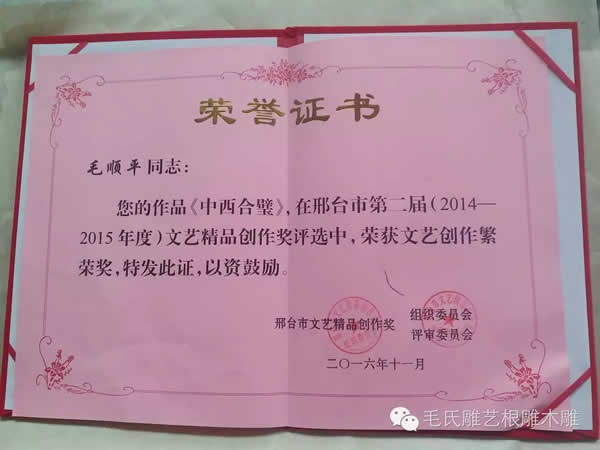 荣誉证书
毛顺平同志：
您的作品《中西合璧》，在邢台市第二届（2014—
2015年度）文艺精品创作奖评选中，荣获文艺创作繁
荣奖，特发此证，以资鼓励。
邢台市文艺精品创作奖 组织委员会
评审委员会
二〇一六年十一月
毛氏雕艺根雕木雕